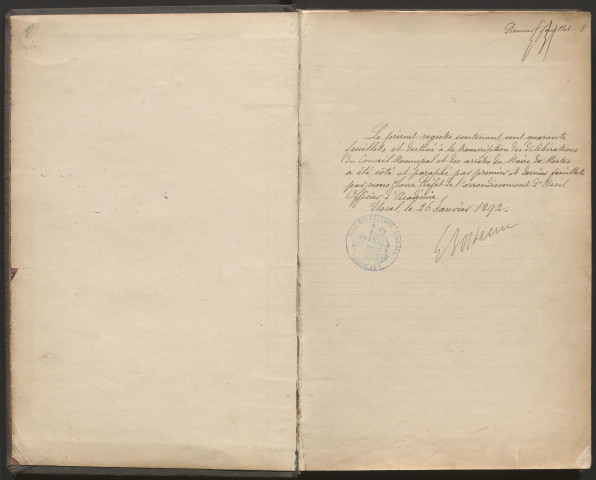 Premier feuillet
Le présent registre contenant cent quarante
feuillets et destiné à la transcription des délibérations
du Conseil Municipal et des arrêtés du Maire de
a été côté et paraphé par premier et dernier feuillets
par nous Sous Préfet de l'arrondissement d'Ussel
Officier d'Académie
Ussel, le 26 Janvier 1892.